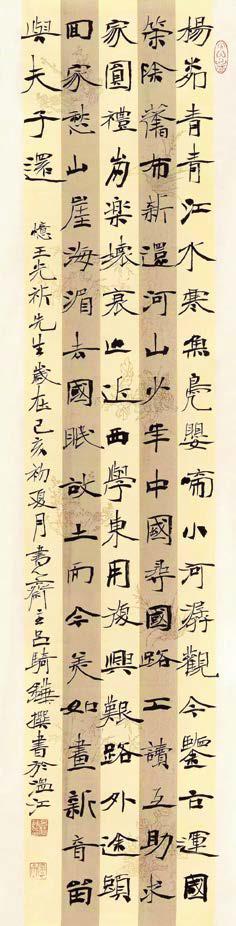 楊柳青青江水寒魚鳧嬰啼小河潺觀今鑒古運國
策除舊布新還河山少年中國尋國路工讀互助求
家圓禮崩樂壞哀亡近西學東用復興艱路外途頭
回家愁山崖海湄去國眠故土而今美如畫新音
與夫子還
憶王光祈先生歲在己亥初夏月書齋主呂騎鏵撰書於溫江